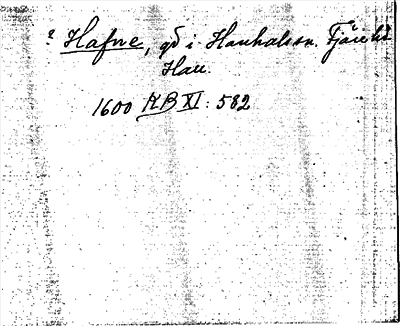 ? Hafne, gd i Hanhals sn. Fjäre hd
Hall.
1600 HB XI: 582